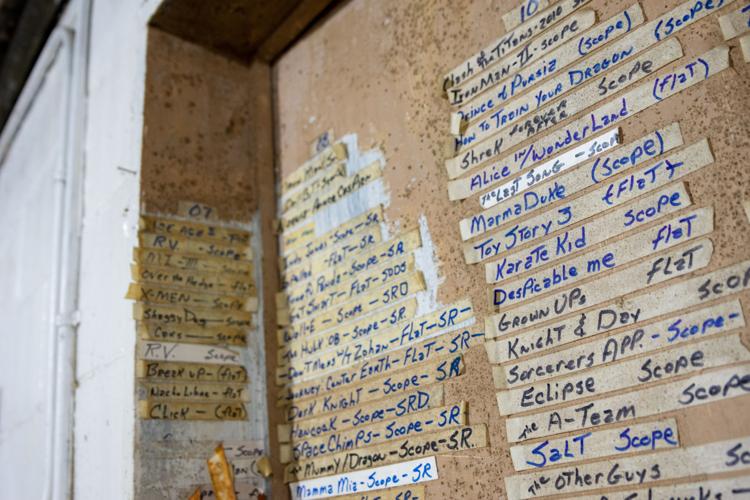 07
ICE AGE 2 -
R.V. - Scope
M I - III - Scope
Over the Hedge - Flat
X-MEN - Scope
Shaggy Dog - Scope
Cars - Scope
R.V. Scope
Break up - (flat)
Nacho Libre - flat
Click - (flat)
08
Prince Caspian
Jones - Scope - SR
- FlaT - SR
Panda - Scope - SR
Get Smart - FlaT - SDDS
Wall-E - Scope - SRD
The Hulk 08 - Scope - SR
Don't Mess w/ Zohan - FlaT - SR -
Journey Center Earth - FlaT - SR -
Dark Knight - Scope - SR
Hancock - Scope - SRD
Space Chimps - Scope - SR
the Mummy/Dragon - Scope - SR
Mamma Mia - Scope - SR
10
Clash of the Titans - 2010 Sc
Iron Man - II - scope
Prince of Pursia (scope)
How To Train Your Dragon (Scope)
Shrek forever after Scope
Alice in/Wonderland (flaT)
The Last Song - Scope
MarmaDuke (scope)
Toy Story 3 (flaT)
Karate Kid Scope
Despicable me flaT
Grown Ups flaT
Knight & Day Scop
Sorcerers APP. - Scope -
Eclipse Scope
the A-Team Scope
SalT Scope
the Other Guys Scope